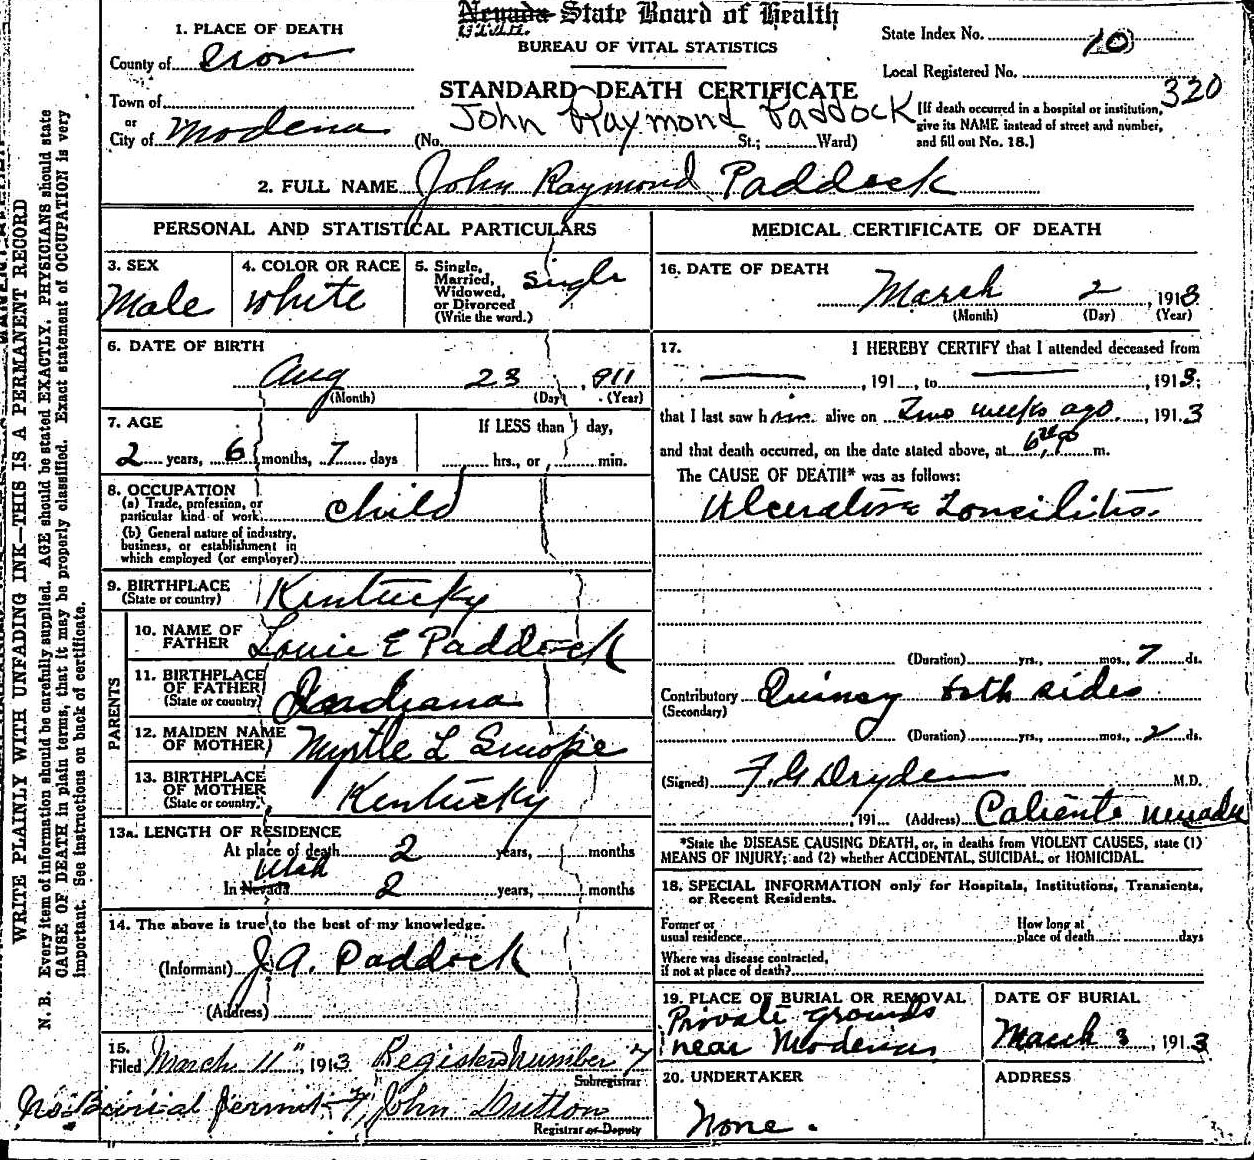 Nevada State Board of Health
UTAH.
BUREAU OF VITAL STATISTICS
STANDARD DEATH CERTIFICATE
State Index No. 10
Local Registered No. 320
1. PLACE OF DEATH
County of Iron
Town of
or
City of Modena
John Raymond Paddock
(No. St.; Ward)
[If death occurred in a hospital or institution,
give its NAME instead of street and number,
and fill out No. 18.]
2. FULL NAME John Raymond Paddock
PERSONAL AND STATISTICAL PARTICULARS
3. SEX
Male
4. COLOR OR RACE
White
5. Single,
Married,
Widowed,
or Divorced
(Write the word.)
Single
6. DATE OF BIRTH
Aug 23, 911
(Month) (Day) (Year)
7. AGE
2 years, 6 months, 7 days
If LESS than 1 day,
hrs., or min.
8. OCCUPATION
(a) Trade, profession, or
particular kind of work child
(b) General nature of industry,
business, or establishment in
which employed (or employer)
9. BIRTHPLACE
(State or country) Kentucky
PARENTS
10. NAME OF
FATHER Louie E Paddock
11. BIRTHPLACE
OF FATHER
(State or country) Indiana
12. MAIDEN NAME
OF MOTHER Myrtle L
13. BIRTHPLACE
OF MOTHER
(State or country) Kentucky
13a. LENGTH OF RESIDENCE
At place of death 2 years, months
Utah
In Nevada 2 years, months
14. The above is true to the best of my knowledge.
(Informant) J.A. Paddock
(Address)
15.
Filed March 11", 1913 Registers number 7
Subregistrar
No Burial permit 7, John Dutton
Registrar or Deputy
MEDICAL CERTIFICATE OF DEATH
16. DATE OF DEATH
March 2, 1913
(Month) (Day) (Year)
17. I HEREBY CERTIFY that I attended deceased from
, 191 , to , 1913;
that I last saw him alive on Two weeks ago, 1913
and that death occurred, on the date stated above, at m.
The CAUSE OF DEATH* was as follows:
Ulcerative Toncilitis.
(Duration) yrs., mos., 7 ds.
Contributory Quincy both sides
(Secondary)
(Duration) yrs., mos., 2 ds.
(Signed) F. G Dryden M.D.
, 191 (Address) Caliente Nevada
*State the DISEASE CAUSING DEATH, or, in deaths from VIOLENT CAUSES, state (1)
MEANS OF INJURY; and (2) whether ACCIDENTAL, SUICIDAL, or HOMICIDAL.
18. SPECIAL INFORMATION only for Hospitals, Institutions, Transients,
or Recent Residents.
Former or
usual residence
How long at
place of death days
Where was disease contracted,
if not at place of death?
19. PLACE OF BURIAL OR REMOVAL
Private grounds
near Modena
DATE OF BURIAL
March 3, 1913
20. UNDERTAKER
None.
ADDRESS
WRITE PLAINLY WITH UNFADING INK—THIS IS A PERMANENT RECORD
N. B. Every item of information should be carefully supplied. AGE should be stated EXACTLY. PHYSICIANS should state
CAUSE OF DEATH in plain terms, that it may be properly classified. Exact statement of OCCUPATION is very
important. See instructions on back of certificate.